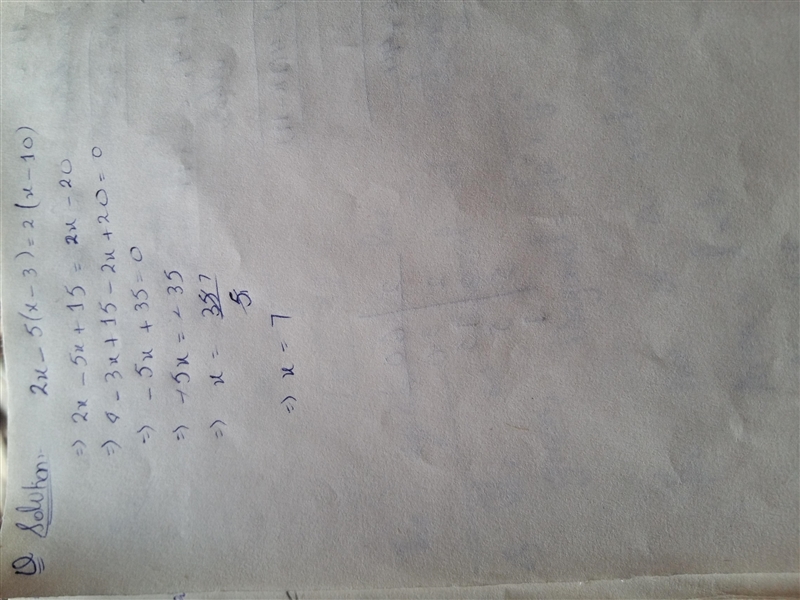 Solution:- 2x - 5(x - 3) = 2(x - 10)
=) 2x - 5x + 15 = 2x - 20
=) - 3x + 15 - 2x + 20 = 0
=) - 5x + 35 = 0
=) -5x = -35
=) x = 35 7
5
=) x = 7